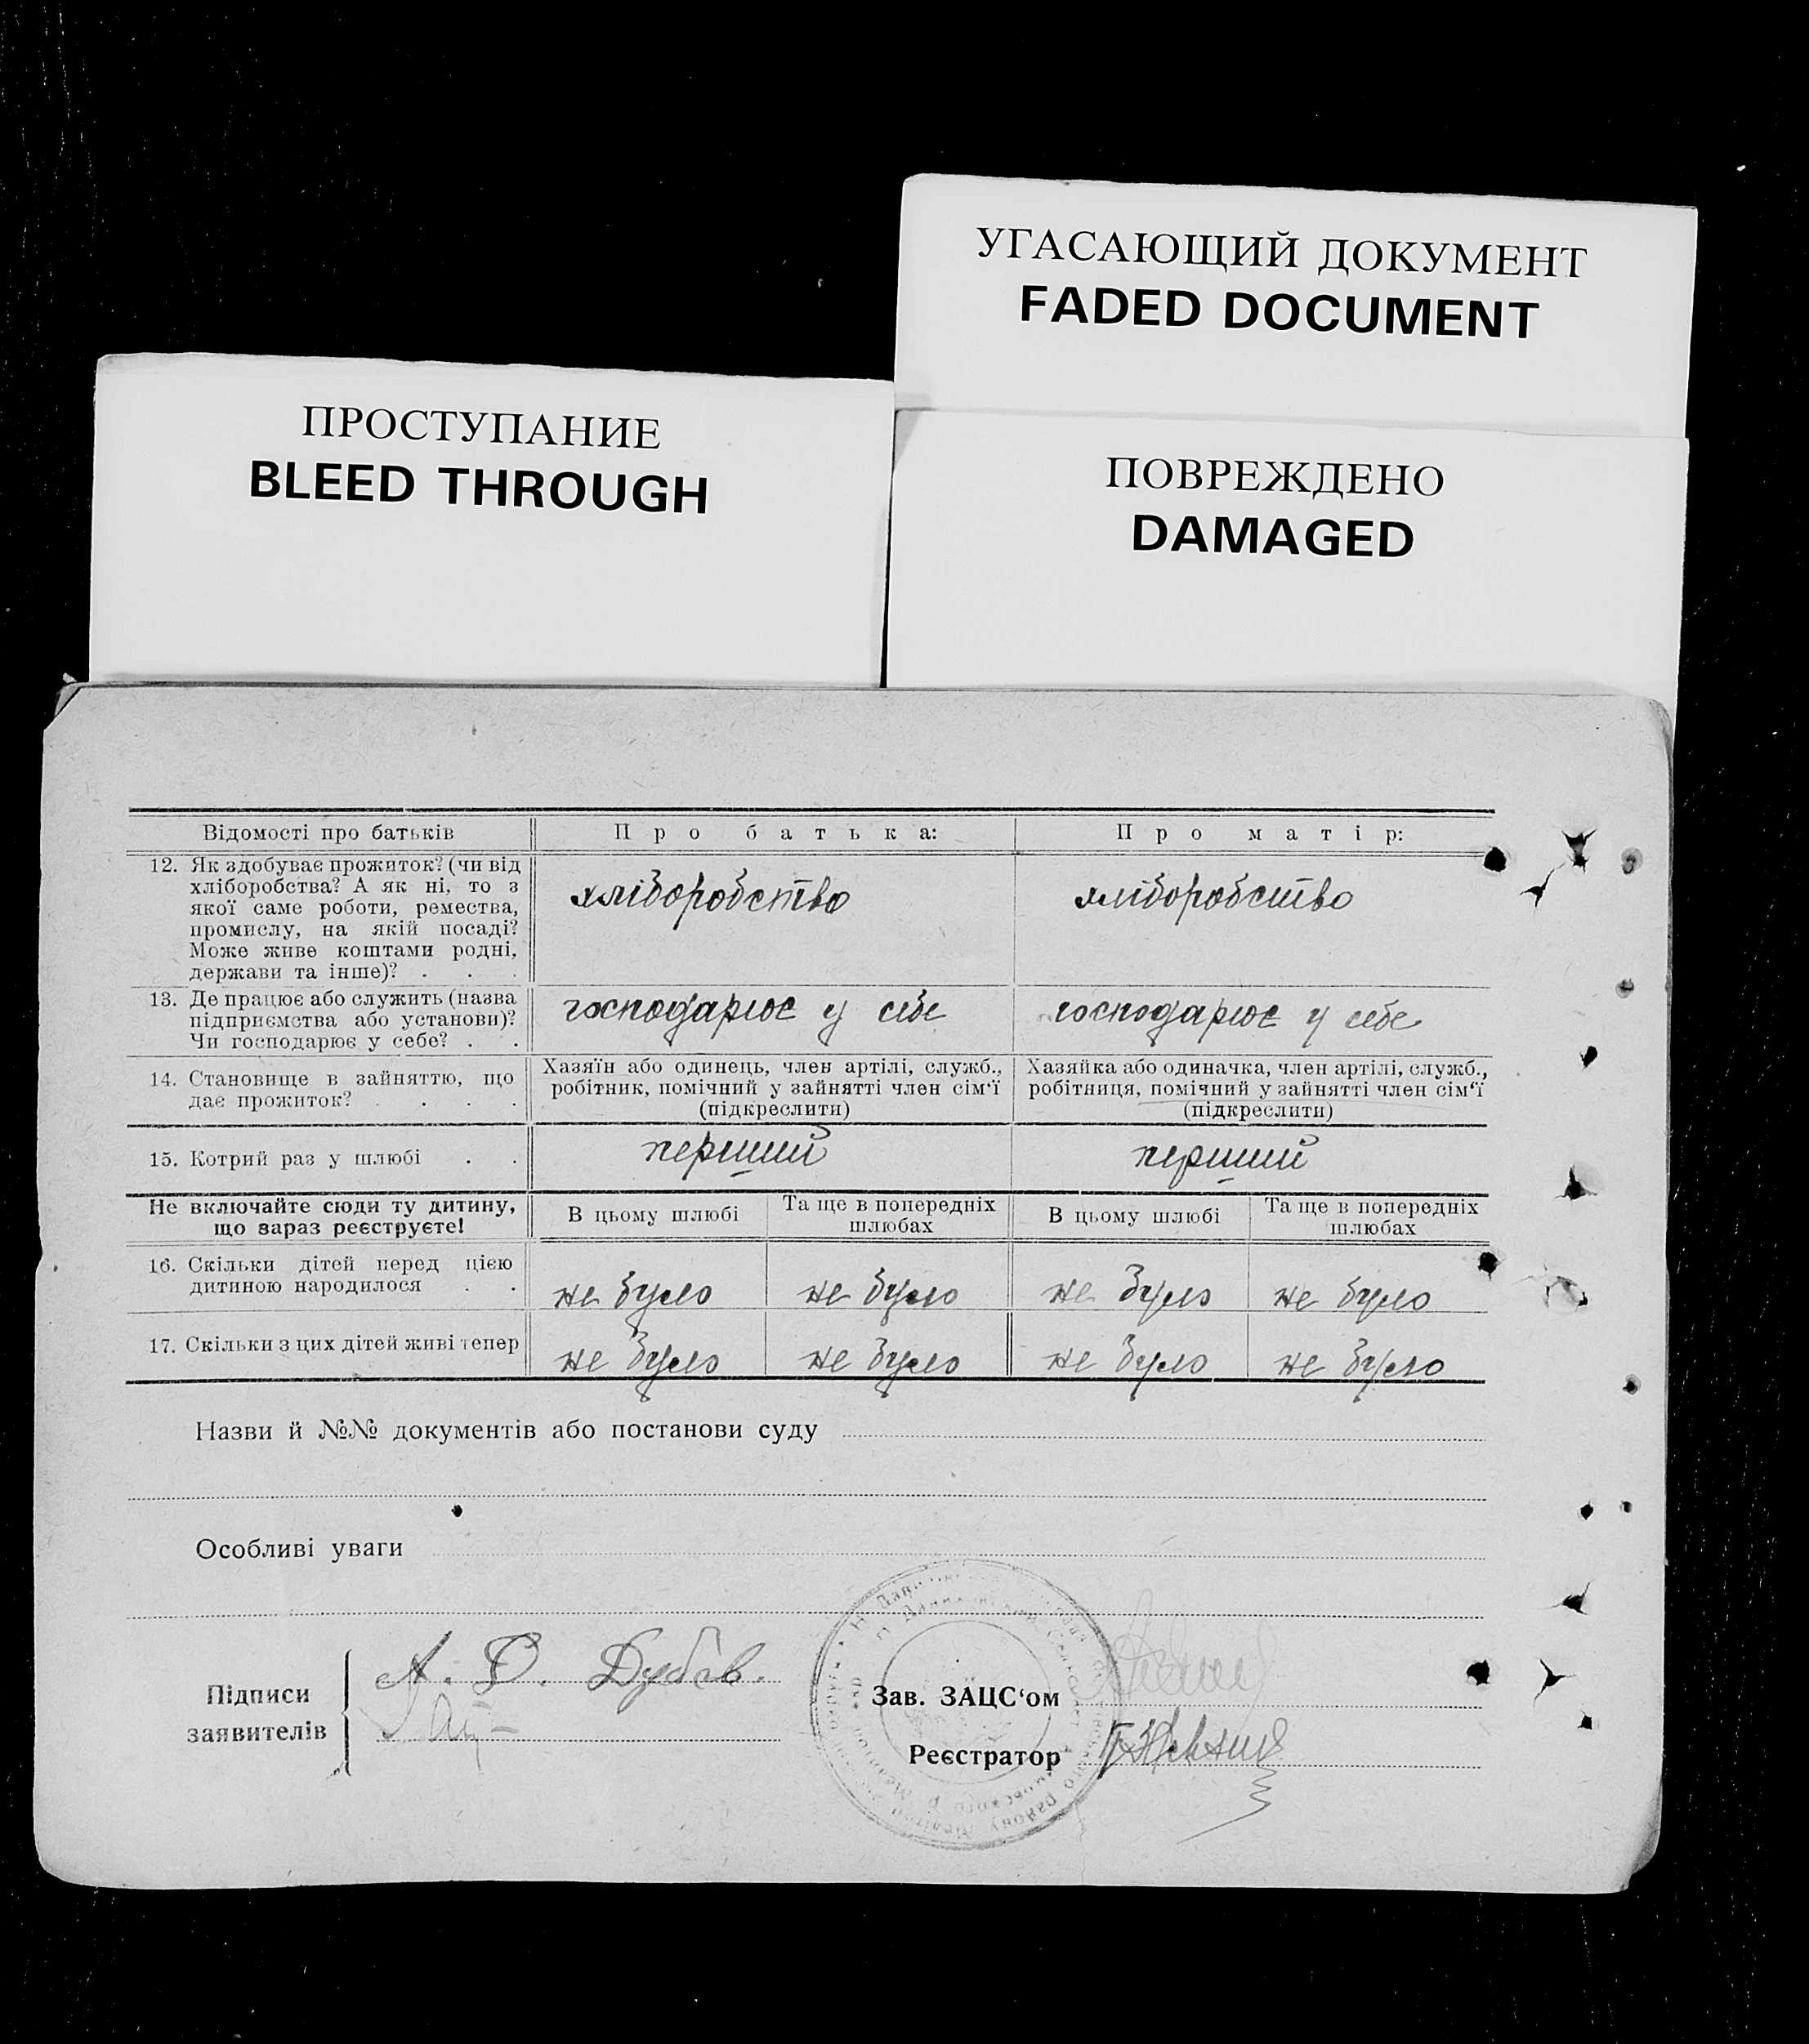 УГАСАЮЩИЙ ДОКУМЕНТ
FADED DOCUMENT
ПРОСТУПАНИЕ
BLEED THROUGH
ПОВРЕЖДЕНО
DAMAGED
Відомості про батьків
Про батька:
Про матір:
12. Як здобуває прожиток? (чи від
хліборобства? А як ні, то з
якої саме роботи, ремества,
промислу, на якій посаді?
Може живе коштами родні,
держави та інше)? . . .
хліборобство
хліборобство
13. Де працює або служить (назва
підприємства або установи)?
Чи господарює у себе? . .
господарює у себе
господарює у себе
14. Становище в зайняттю, що
дає прожиток? . . . .
Хазяїн або одинець, член артілі, служб.,
робітник, помічний у зайнятті член сім‘ї
(підкреслити)
Хазяйка або одиначка, член артілі, служб.,
робітниця, помічний у зайнятті член сім‘ї
(підкреслити)
15. Котрий раз у шлюбі . .
перший
перший
Не включайте сюди ту дитину,
що зараз реєструєте!
В цьому шлюбі
Та ще в попередніх
шлюбах
В цьому шлюбі
Та ще в попередніх
шлюбах
16. Скільки дітей перед цією
дитиною народилося . .
не було
не було
не було
не було
17. Скільки з цих дітей живі тепер
не було
не було
не було
не було
Назви й №№ документів або постанови суду
Особливі уваги
Підписи
заявителів
А. Ф. Дубів.
Зав. ЗАЦС‘ом
Реєстратор